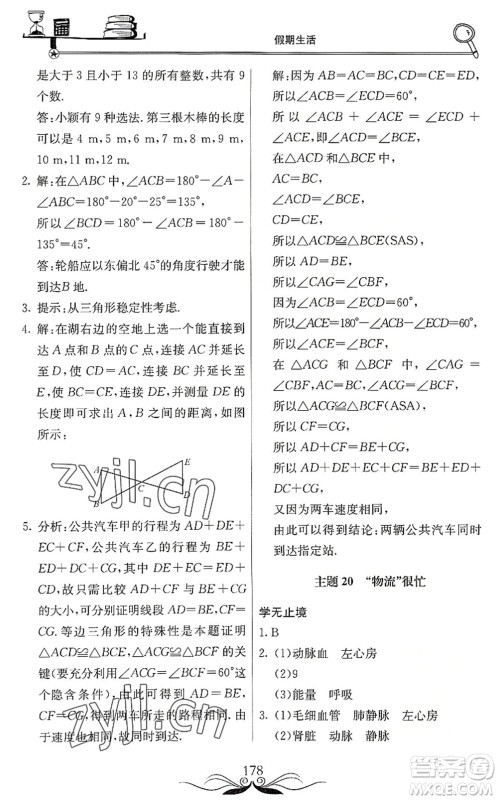 假期生活
是大于 3 且小于 13 的所有整数，共有 9
个数.
答：小颖有 9 种选法. 第三根木棒的长度
可以是 4 m，5 m，6 m，7 m，8 m，9 m，
10 m，11 m，12 m.
2. 解：在△ABC 中，∠ACB=180°-∠A-
∠ABC=180°-20°-25°=135°，
所以∠BCD=180°-∠ACB=180°-
135°=45°.
答：轮船应以东偏北 45°的角度行驶才能
到达 B 地.
3. 提示：从三角形稳定性考虑.
4. 解：在湖右边的空地上选一个能直接到
到达 A 点和 B 点的点 C，连接 AC 并延长
至 D，使 BC=CE，连接 DE，并测量 DE 的
长度即可求出 A，B 之间的距离，如图
所示：
A
E
C
B
D
5. 分析：公共汽车甲的行程为 AD+DE+
EC+CF，公共汽车乙的行程为 BC+
CE+ED+CG，由于 EC=CE，DE=ED，
因此只需比较 AD+CF 与 BC+CG
的大小，可分别证明线段 AD=BC，CF=
CG. 等边三角形的特殊性是本题的
关键（为证明△ACD≌△BCE，
△ACG≌△BCF，∠ACG=∠BCF=60°这
个隐含条件），由此可知 AD=BE，CF=
CG，得到两车所走的路程相同. 由
于速度也相同，故同时到达.
解：因为∠ACB=∠ECD=60°，
所以∠ACB=∠ECD=60°，
所以∠ACB + ∠ACE = ∠ECD +
∠ACE，所以∠ECB=∠ACD.
在△ACD 和△BCE 中，
AC=BC，
∠ACD=∠BCE，
CD=CE，
所以△ACD≌△BCE(SAS)，
所以 AD=BE，
所以∠CAG=∠CBF，
因为∠ACG=180°-∠ACB-
∠ECD=180°-60°-60°=60°，
所以∠ACG=∠BCF，
在△ACG 和△BCF 中，∠CAG =
∠CBF，AC=BC，∠ACG=∠BCF，
所以△ACG≌△BCF(ASA)，
所以 CF=CG，
所以 AD+CF=BE+CG，
所以 AD+DE+EC+CF=BC+CE+
ED+CG.
又因为两车速度相同，
由此可以得到结论：两辆公共汽车同时
到达指定站.
主题 20　“物流”很忙
学无止境
1. B
2. (1)动脉血　左心房
(2)9
(3)能量　呼吸
3. (1)毛细血管　肺静脉　左心房
(2)肾脏　动脉　静脉
178
zyjl.cn
zyjl.cn
答案圈
MXQE.COM